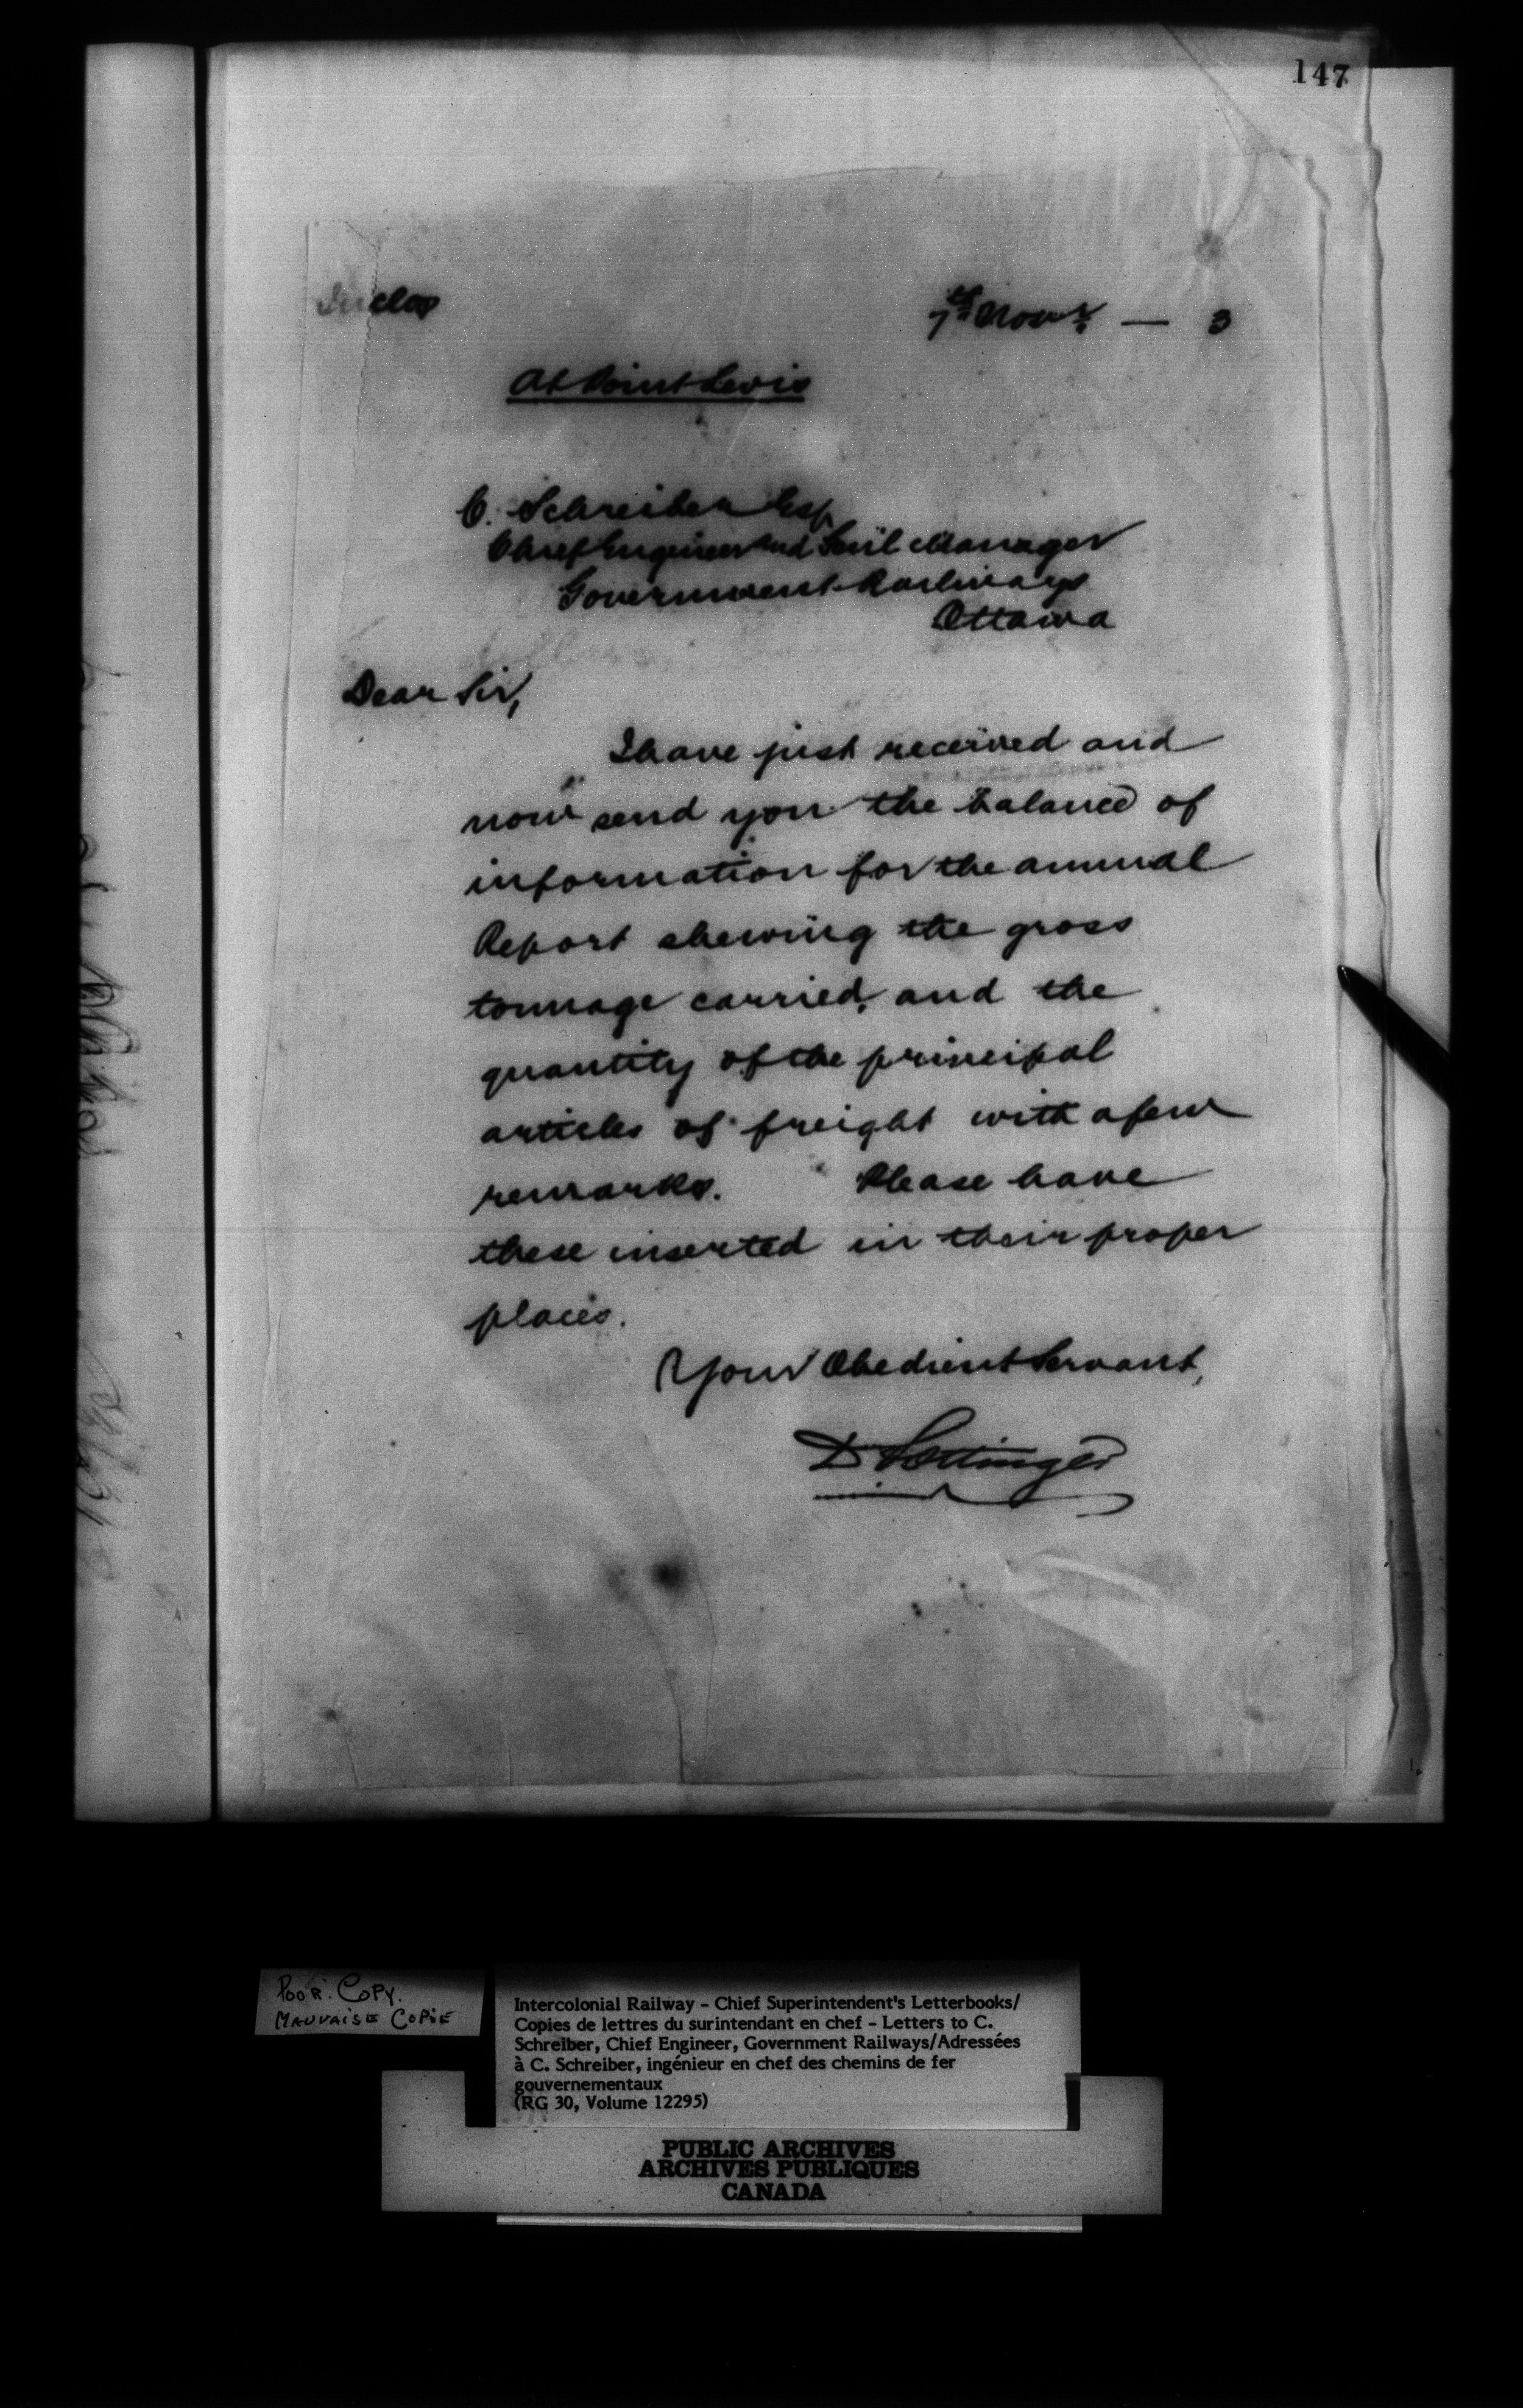 147
Inclos
7th Novr. — 3
At Point Levis
C. Schreiber Esq
Chief Engineer and Genl Manager
Government Railways
Ottawa
Dear Sir,
I have just received and
now send you the balance of
information for the annual
Report shewing the gross
tonnage carried, and the
quantity of the principal
articles of freight with a few
remarks. Please have
these inserted in their proper
places.
Your Obedient Servant,
D Pottinger
POOR. COPY.
MAUVAISE COPIE
Intercolonial Railway - Chief Superintendent's Letterbooks/
Copies de lettres du surintendant en chef - Letters to C.
Schreiber, Chief Engineer, Government Railways/Adressées
à C. Schreiber, ingénieur en chef des chemins de fer
gouvernementaux
(RG 30, Volume 12295)
PUBLIC ARCHIVES
ARCHIVES PUBLIQUES
CANADA